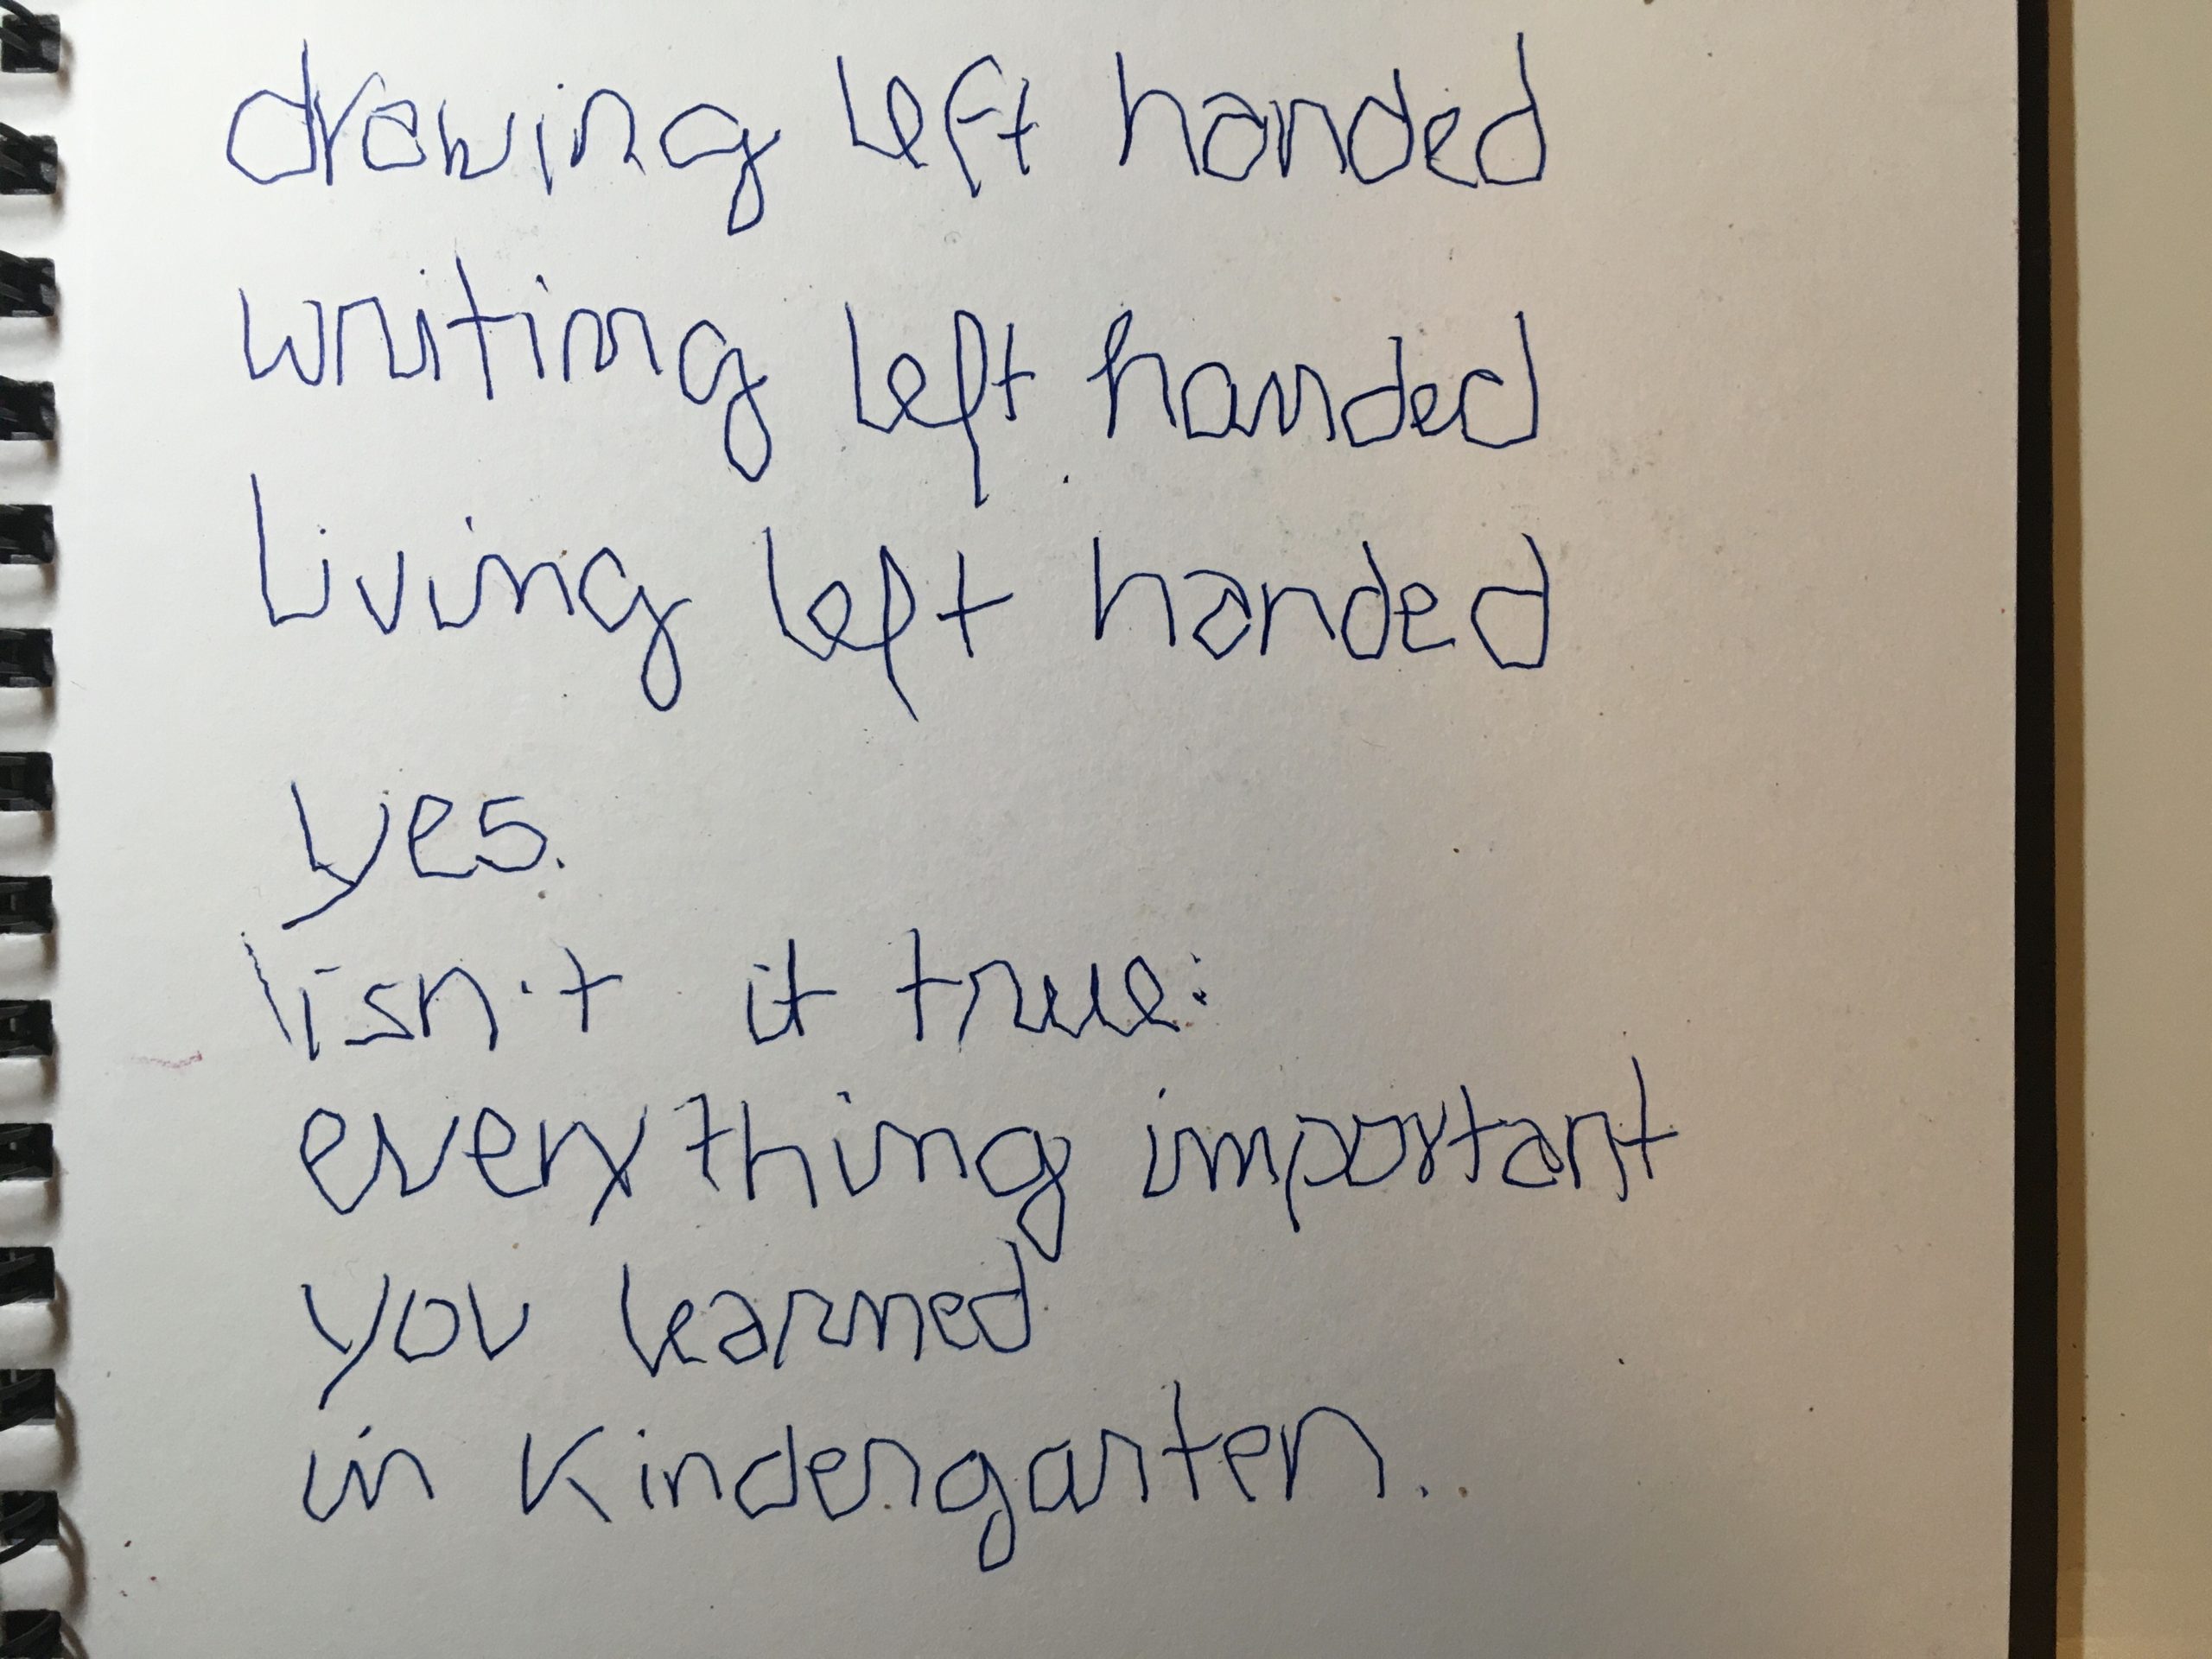 drawing left handed
writing left handed
Living left handed
yes.
isn't it true:
everything important
you learned
in Kindergarten..